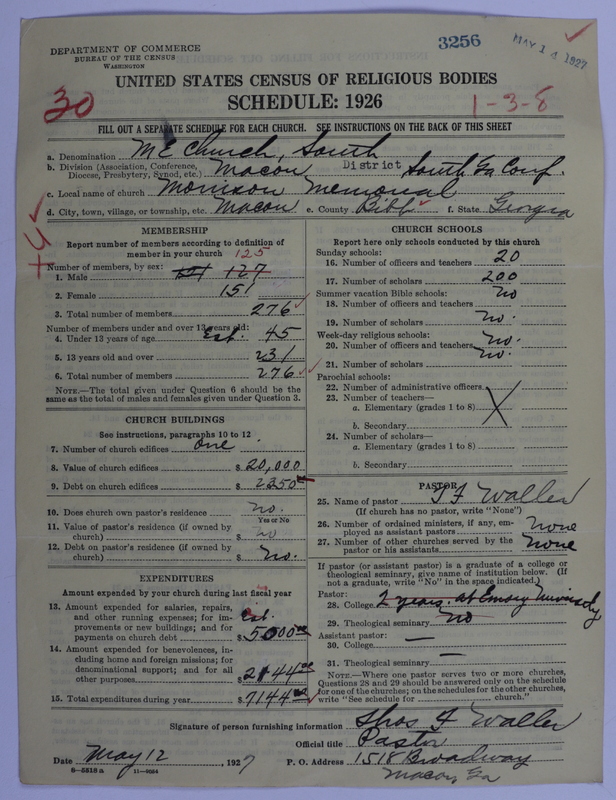 DEPARTMENT OF COMMERCE
BUREAU OF THE CENSUS
WASHINGTON
3256
MAY 14 1927
UNITED STATES CENSUS OF RELIGIOUS BODIES
SCHEDULE: 1926
30
1-3-8
FILL OUT A SEPARATE SCHEDULE FOR EACH CHURCH. SEE INSTRUCTIONS ON THE BACK OF THIS SHEET
a. Denomination M E Church, South
b. Division (Association, Conference, Diocese, Presbytery, Synod, etc.) Macon District South Ga Conf.
c. Local name of church Morrison Memorial
d. City, town, village, or township, etc. Macon e. County Bibb f. State Georgia
MEMBERSHIP
Report number of members according to definition of
member in your church 125
Number of members, by sex:
1. Male 127
2. Female 151
3. Total number of members 276
Number of members under and over 13 years old:
4. Under 13 years of age Est. 45
5. 13 years old and over 231
6. Total number of members 276
NOTE.—The total given under Question 6 should be the
same as the total of males and females given under Question 3.
CHURCH BUILDINGS
See instructions, paragraphs 10 to 12
7. Number of church edifices one
8. Value of church edifices $ 20,000
9. Debt on church edifices $ 2350
10. Does church own pastor's residence no.
Yes or No
11. Value of pastor's residence (if owned by
church) $ no
12. Debt on pastor's residence (if owned by
church) $ no.
EXPENDITURES
Amount expended by your church during last fiscal year
13. Amount expended for salaries, repairs,
and other running expenses; for im-
provements or new buildings; and for
payments on church debt Est. $ 5000 00
14. Amount expended for benevolences, in-
cluding home and foreign missions; for
denominational support; and for all
other purposes $ 2144 00
15. Total expenditures during year $ 7144 00
CHURCH SCHOOLS
Report here only schools conducted by this church
Sunday schools:
16. Number of officers and teachers 20
17. Number of scholars 200
Summer vacation Bible schools:
18. Number of officers and teachers no
19. Number of scholars no.
Week-day religious schools:
20. Number of officers and teachers no.
21. Number of scholars no.
Parochial schools:
22. Number of administrative officers
23. Number of teachers—
a. Elementary (grades 1 to 8)
b. Secondary
24. Number of scholars—
a. Elementary (grades 1 to 8)
b. Secondary
PASTOR
25. Name of pastor T F Waller
(If church has no pastor, write "None")
26. Number of ordained ministers, if any, em-
ployed as assistant pastors none
27. Number of other churches served by the
pastor or his assistants none
If pastor (or assistant pastor) is a graduate of a college or
theological seminary, give name of institution below. (If
not a graduate, write "No" in the space indicated.)
Pastor:
28. College 2 years. at Emory University
29. Theological seminary no
Assistant pastor:
30. College —
31. Theological seminary —
NOTE.—Where one pastor serves two or more churches,
Questions 28 and 29 should be answered only on the schedule
for one of the churches; on the schedules for the other churches,
write "See schedule for church."
Signature of person furnishing information Thos F Waller
Official title Pastor
Date May 12, 1927 P. O. Address 1518 Broadway
8—5518 a 11—9024 Macon, Ga